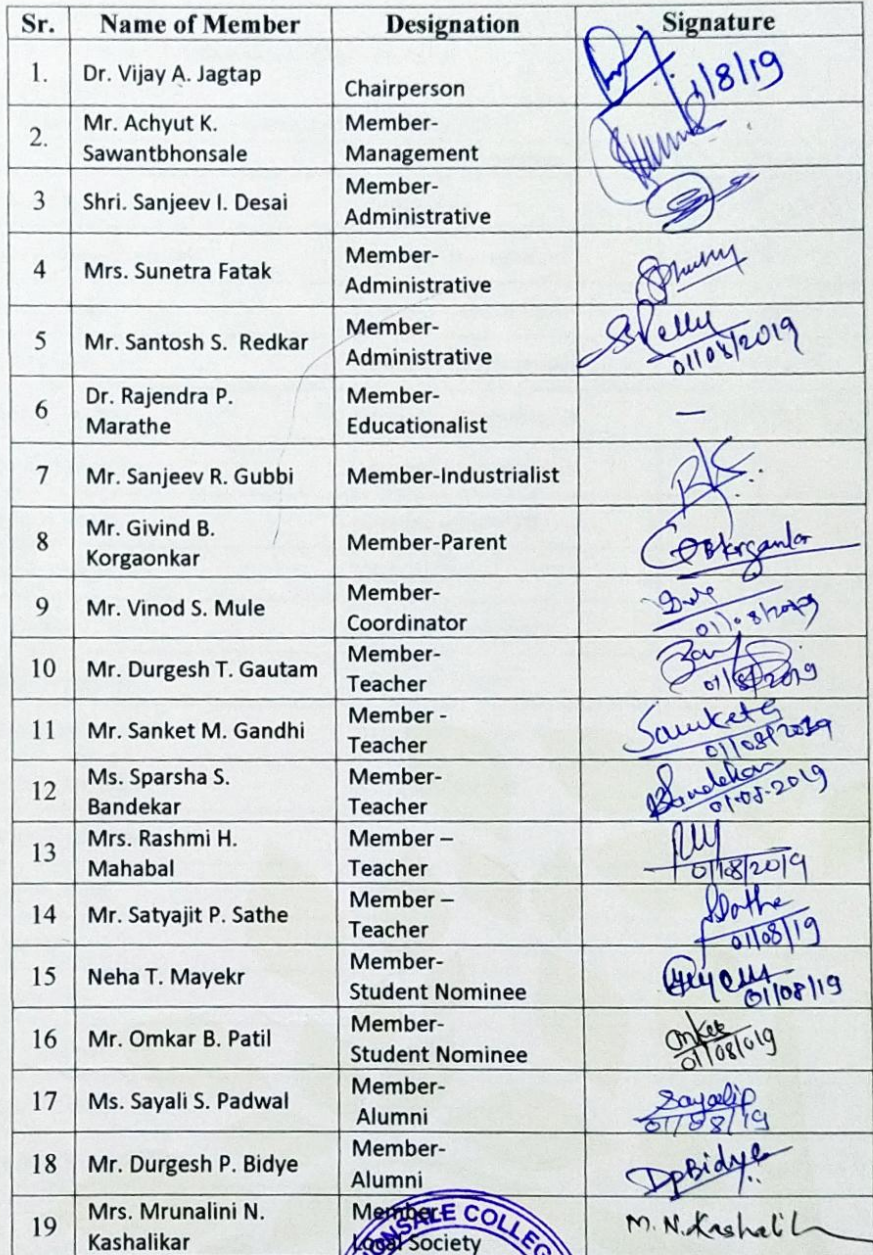 Sr. Name of Member Designation Signature
1. Dr. Vijay A. Jagtap Chairperson 1/8/19
2. Mr. Achyut K. Sawantbhonsale Member- Management
3 Shri. Sanjeev I. Desai Member- Administrative
4 Mrs. Sunetra Fatak Member- Administrative
5 Mr. Santosh S. Redkar Member- Administrative 01/08/2019
6 Dr. Rajendra P. Marathe Member- Educationalist —
7 Mr. Sanjeev R. Gubbi Member-Industrialist
8 Mr. Givind B. Korgaonkar Member-Parent
9 Mr. Vinod S. Mule Member- Coordinator 01/08/2019
10 Mr. Durgesh T. Gautam Member- Teacher 01/8/2019
11 Mr. Sanket M. Gandhi Member - Teacher Sanket G 01/08/2019
12 Ms. Sparsha S. Bandekar Member- Teacher Bandekar 01-08-2019
13 Mrs. Rashmi H. Mahabal Member – Teacher 01/08/2019
14 Mr. Satyajit P. Sathe Member – Teacher Sathe 01/08/19
15 Neha T. Mayekr Member- Student Nominee 01/08/19
16 Mr. Omkar B. Patil Member- Student Nominee 01/08/019
17 Ms. Sayali S. Padwal Member- Alumni Sayalip 01/08/19
18 Mr. Durgesh P. Bidye Member- Alumni DpBidye
19 Mrs. Mrunalini N. Kashalikar Member- Local Society M. N. Kashalik
ONSALE COLLEG